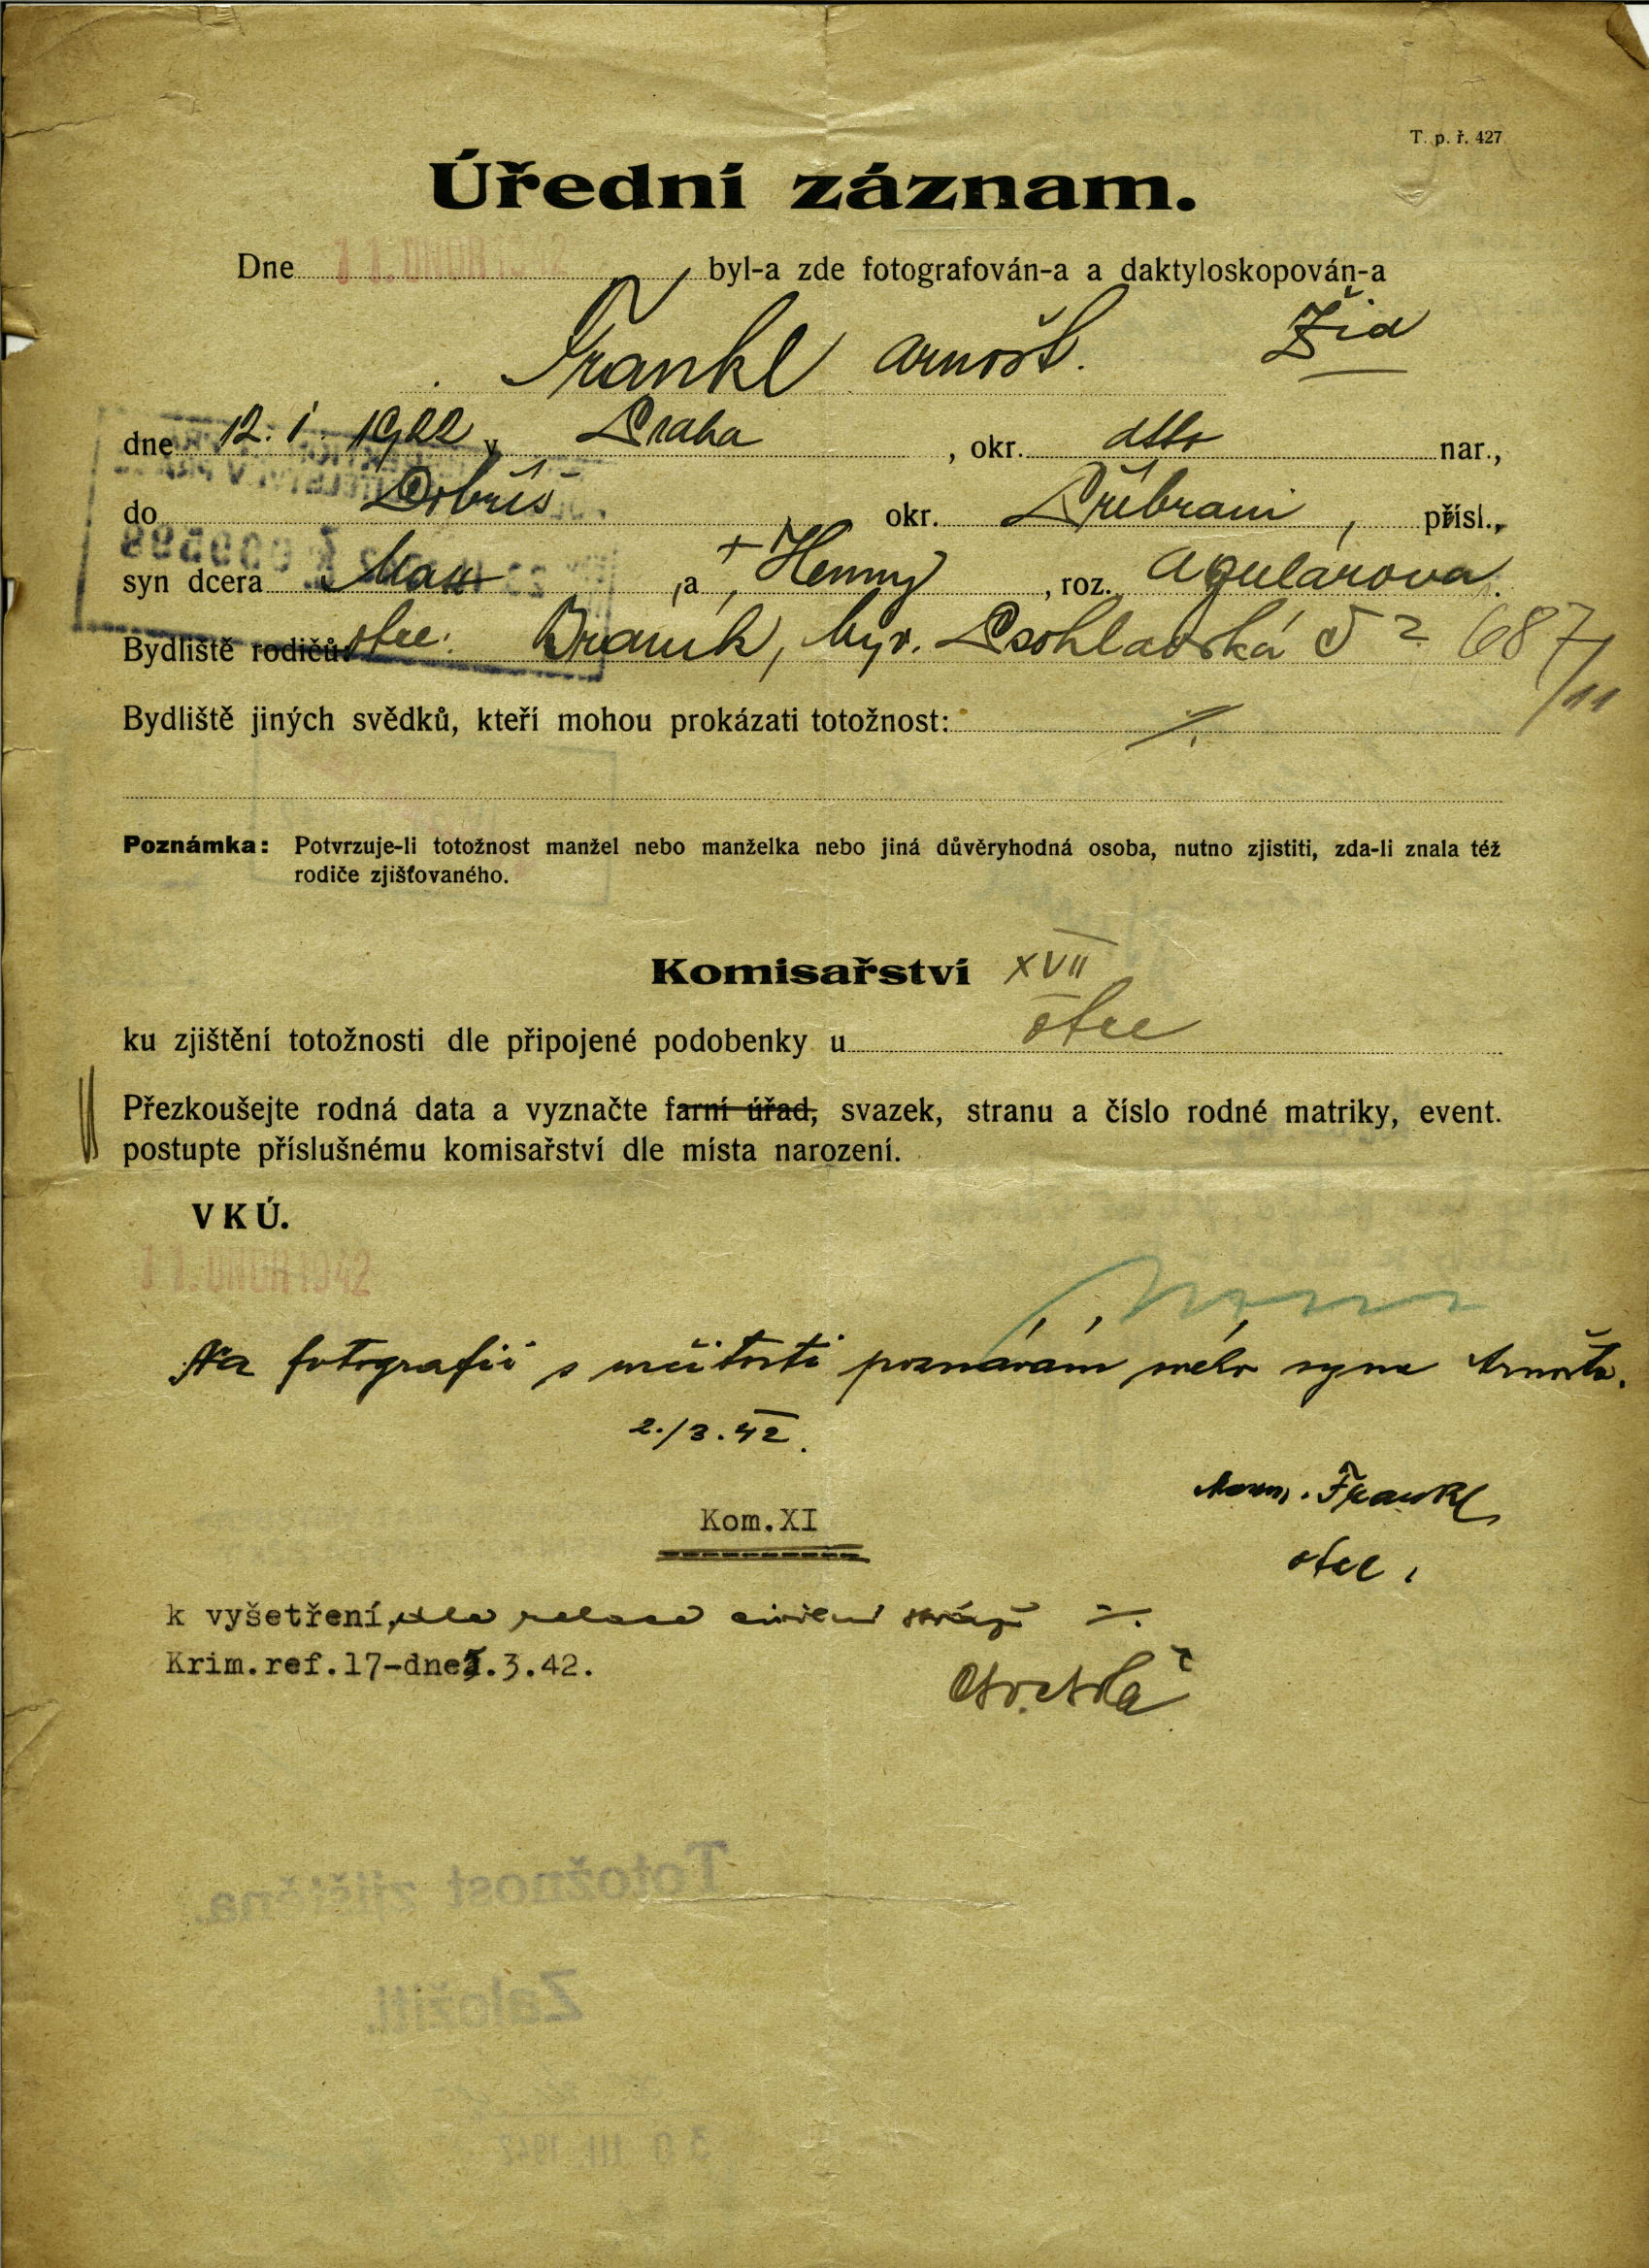 T. p. ř. 427
Úřední záznam.
Dne 11. ÚNOR 1942 byl-a zde fotografován-a a daktyloskopován-a
Frankl Arnošt. Žid
dne 12. I. 1922 v Praha, okr. dtto nar.,
do Dobříš okr. Příbrami, přísl.,
syn dcera Max, a + Henny, roz. Agulárova.
Bydliště rodičů otec: Braník, byv. Psohlavská č 2 687/11
Bydliště jiných svědků, kteří mohou prokázati totožnost: %.
Poznámka: Potvrzuje-li totožnost manžel nebo manželka nebo jiná důvěryhodná osoba, nutno zjistiti, zda-li znala též
rodiče zjišťovaného.
Komisařství XVII
ku zjištění totožnosti dle připojené podobenky u otce
Přezkoušejte rodná data a vyznačte farní úřad, svazek, stranu a číslo rodné matriky, event.
postupte příslušnému komisařství dle místa narození.
V K Ú.
11. ÚNOR 1942
Na fotografii s určitostí poznávám mého syna Arnošta.
2./3.42.
Frankl
otec.
Kom.XI
k vyšetření, dle relace civilní stráže %.
Krim.ref.17-dne .3.42.
Totožnost zjištěna.
Založiti.
30 III 1942